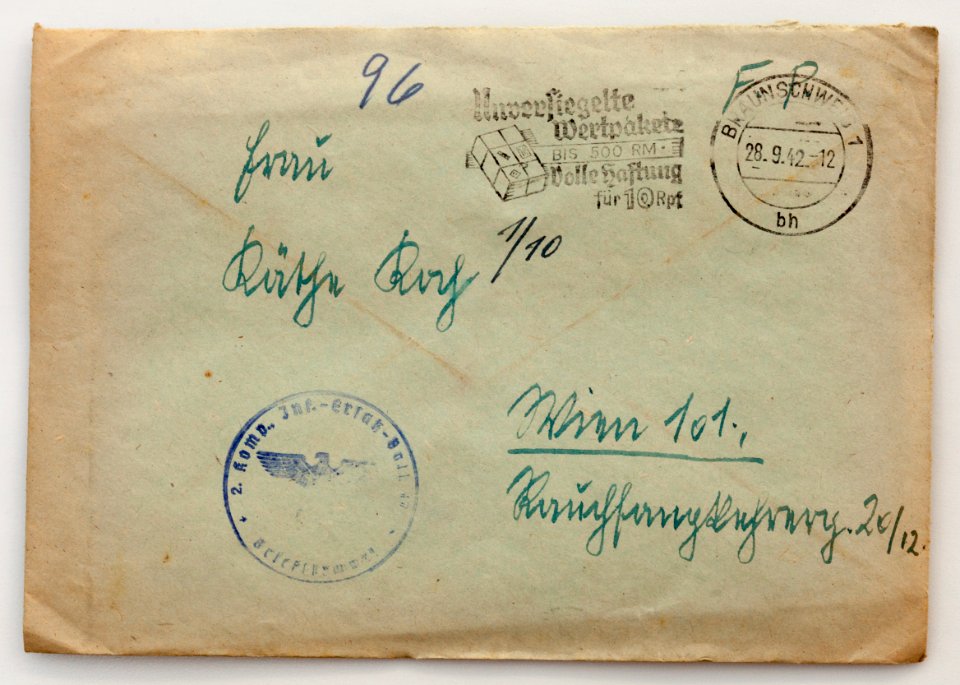 96
F P
Unversiegelte
Wertpakete
BIS 500 RM.
Volle Haftung
für 10 Rpf
BRAUNSCHWEIG 1
28.9.42.-12
bh
Frau
Käthe Koch
1/10
Wien 101.,
Rauchfangkehrerg. 20/12.
2. Komp., Inf.-Ersatz-Batl.
Briefstempel